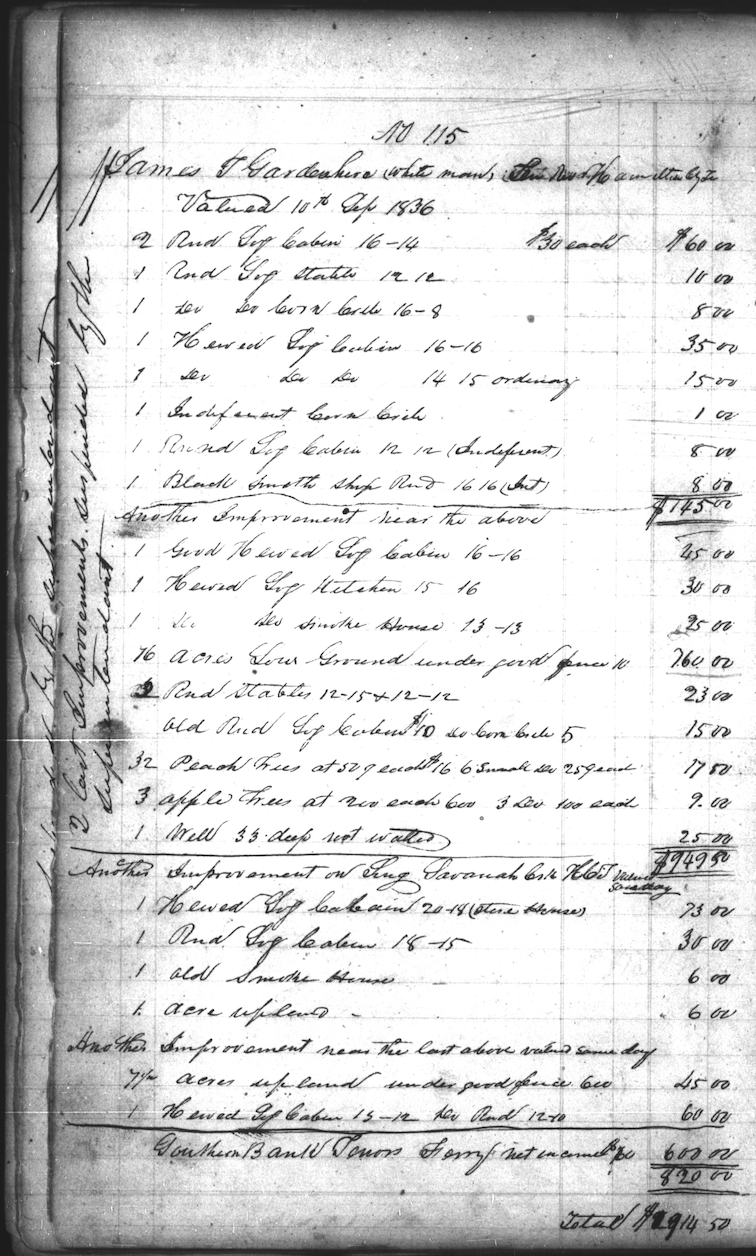 No 115
James T Gardenhire (White man) Tenn River Hamilton Cty Te
Valued 10th Sep 1836
2 Rnd Log Cabin 16-14 $30 each $60 00
1 Rnd Log Stable 12 12 10 00
1 Do Do Corn Crib 16-8 8 00
1 Hewed Log Cabin 16-16 35 00
1 Do Do Do 14 15 ordinary 15 00
1 Indiferent Corn Crib 1 00
1 Round Log Cabin 12 12 (Indiferent) 8 00
1 Black Smith Shop Rnd 16 16 (Int) 8 00
$145 00
Another Improvement near the above
1 Good Hewed Log Cabin 16-16 45 00
1 Hewed Log Kitchen 15 16 30 00
1 Do Do Smoke House 13-13 25 00
76 Acres Low Ground under good fence 10 760 00
2 Rnd Stables 12-15 & 12-12 23 00
Old Rnd Log Cabin $10 Do Corn Crib 5 15 00
32 Peach Trees at 50¢ each $16 6 Small Do 25¢ each 17 50
3 apple Trees at 200 each 600 3 Do 100 each 9.00
1 Well 33 deep not walled 25 00
$949 50
Another Improvement on Savanah Crk HCT Valued same day
1 Hewed Log Cabain 20-18 (Store House) 73 00
1 Rnd Log Cabin 18-15 30 00
1 Old Smoke House 6 00
1 Acre upland - 6 00
Another Improvement near the last above valued same day
7½ Acres upland under good fence 600 45 00
1 Hewed Log Cabin 13-12 Do Rnd 12-10 60 00
Southern Bank Ferry net income 600 00
820 00
Total $1914 50
2 last Improvements suspended by the
Superintendant